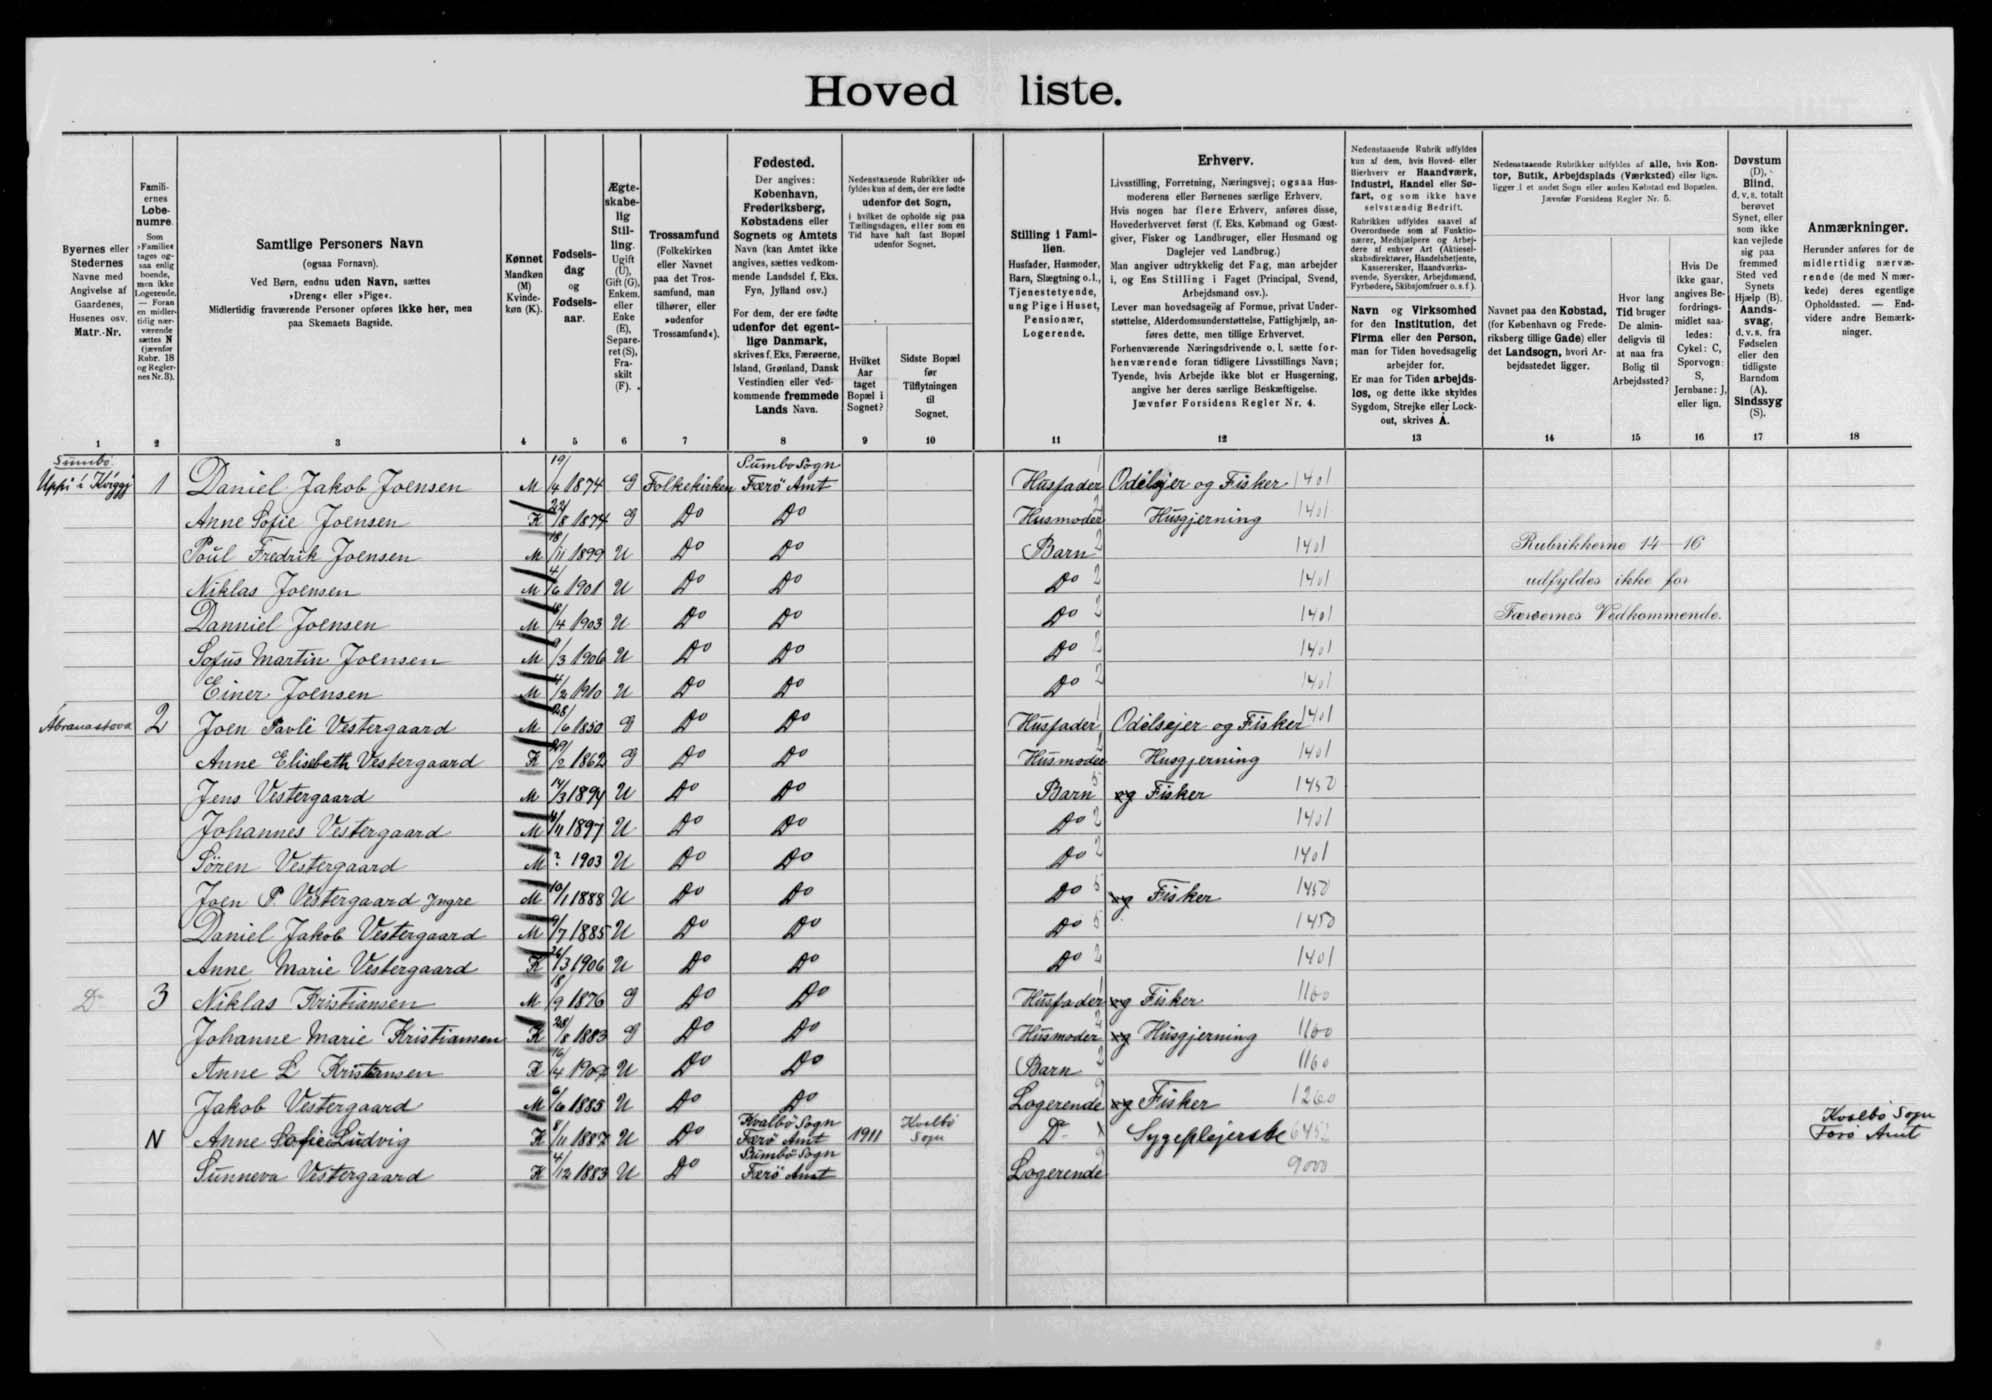 Hoved liste.
Byernes eller Stedernes Navne med Angivelse af Gaardenes, Husenes osv. Matr.-Nr.
Familiernes Løbenumre.
Som »Familie« tages ogsaa enlig boende, men ikke Logerende. — Foran en midlertidig nærværende sættes N (jævnfør Rubr. 18 og Regler-nes Nr. 3).
Samtlige Personers Navn
(ogsaa Fornavn).
Ved Børn, endnu uden Navn, sættes
»Dreng« eller »Pige«.
Midlertidig fraværende Personer opføres ikke her, men
paa Skemaets Bagside.
Kønnet
Mandkøn (M) Kvinde-køn (K).
Fødsels-dag og Fødsels-aar.
Ægte-skabe-lig Stil-ling.
Ugift (U), Gift (G), Enkem. eller Enke (E), Separe-ret (S), Fra-skilt (F).
Trossamfund
(Folkekirken eller Navnet paa det Tros-samfund, man tilhører, eller »udenfor Trossamfund«).
Fødested.
Der angives:
København,
Frederiksberg,
Købstadens eller
Sognets og Amtets
Navn (kan Amtet ikke
angives, sættes vedkom-
mende Landsdel f. Eks.
Fyn, Jylland osv.)
For dem, der ere fødte
udenfor det egent-
lige Danmark,
skrives f. Eks. Færøerne,
Island, Grønland, Dansk
Vestindien eller ved-
kommende fremmede
Lands Navn.
Nedenstaaende Rubrikker ud-
fyldes kun af dem, der ere fødte
udenfor det Sogn,
i hvilket de opholde sig paa
Tællingsdagen, eller som en
Tid have haft fast Bopæl
udenfor Sognet.
Hvilket Aar taget Bopæl i Sognet?
Sidste Bopæl før Tilflytningen til Sognet.
Stilling i Fami-
lien.
Husfader, Husmoder,
Barn, Slægtning o. l.,
Tjenestetyende,
ung Pige i Huset,
Pensionær,
Logerende.
Erhverv.
Livsstilling, Forretning, Næringsvej; ogsaa Hus-
moderens eller Børnenes særlige Erhverv.
Hvis nogen har flere Erhverv, anføres disse,
Hovederhvervet først (f. Eks. Købmand og Gæst-
giver, Fisker og Landbruger, eller Husmand og
Daglejer ved Landbrug.)
Man angiver udtrykkelig det Fag, man arbejder
i, og Ens Stilling i Faget (Principal, Svend,
Arbejdsmand osv.).
Lever man hovedsagelig af Formue, privat Under-
støttelse, Alderdomsunderstøttelse, Fattighjælp, an-
føres dette, men tillige Erhvervet.
Forhenværende Næringsdrivende o. l. sætte for-
henværende foran tidligere Livsstillings Navn;
Tyende, hvis Arbejde ikke blot er Husgerning,
angive her deres særlige Beskæftigelse.
Jævnfør Forsidens Regler Nr. 4.
Nedenstaaende Rubrik udfyldes
kun af dem, hvis Hoved- eller
Bierhverv er Haandværk,
Industri, Handel eller Sø-
fart, og som ikke have
selvstændig Bedrift.
Rubrikken udfyldes saavel af
Overordnede som af Funktio-
nærer, Medhjælpere og Arbej-
dere af enhver Art (Aktiesel-
skabsdirektører, Handelsbetjente,
Kassererskær, Haandværks-
svende, Syersker, Arbejdsmænd,
Fyrbødere, Skibsjomfruer o. s. f.).
Navn og Virksomhed
for den Institution, det
Firma eller den Person,
man for Tiden hovedsagelig
arbejder for.
Er man for Tiden arbejds-
løs, og dette ikke skyldes
Sygdom, Strejke eller Lock-
out, skrives A.
Nedenstaaende Rubrikker udfyldes af alle, hvis Kon-
tor, Butik, Arbejdsplads (Værksted) eller lign.
ligger i et andet Sogn eller anden Købstad end Bopælen.
Jævnfør Forsidens Regler Nr. 5.
Navnet paa den Købstad,
(for København og Frede-
riksberg tillige Gade) eller
det Landsogn, hvori Ar-
bejdsstedet ligger.
Hvor lang Tid bruger De almin-deligvis til at naa fra Bolig til Arbejdssted?
Hvis De ikke gaar, angives Be-fordrings-midlet saa-ledes: Cykel: C, Sporvogn: S, Jernbane: J, eller lign.
Døvstum (D), Blind, d. v. s. totalt berøvet Synet, eller som ikke kan vejlede sig paa fremmed Sted ved Synets Hjælp (B). Aands-svag, d. v. s. fra Fødselen eller den tidligste Barndom (A). Sindssyg (S).
Anmærkninger.
Herunder anføres for de
midlertidig nærvæ-
rende (de med N mær-
kede) deres egentlige
Opholdssted. — End-
videre andre Bemærk-
ninger.
1 2 3 4 5 6 7 8 9 10 11 12 13 14 15 16 17 18
Sumbø
Uppi i 1 Daniel Jakob Joensen M 19/4 1874 G Folkekirken Sumbo Sogn Færø Amt Husfader 1 Odelsejer og Fisker 1401
Anne Sofie Joensen K 22/8 1874 G Do Do Husmoder 2 Husgjerning 1401
Poul Fredrik Joensen M 18/11 1899 U Do Do Barn 2 1401 Rubrikkerne 14—16
Niklas Joensen M 4/6 1901 U Do Do Do 2 1401 udfyldes ikke for
Danniel Joensen M /4 1903 U Do Do Do 2 1401 Færøernes Vedkommende.
Sofus Martin Joensen M 9/3 1906 U Do Do Do 2 1401
Einer Joensen M 4/2 1910 U Do Do Do 2 1401
Abranastova 2 Joen Pavli Vestergaard M 28/6 1850 G Do Do Husfader 1 Odelsejer og Fisker 1401
Anne Elisebeth Vestergaard K 29/2 1862 G Do Do Husmoder Husgjerning 1401
Jens Vestergaard M 14/3 1894 U Do Do Barn 5 og Fisker 1450
Johannes Vestergaard M /11 1897 U Do Do Do 2 1401
Søren Vestergaard M ? 1903 U Do Do Do 2 1401
Joen P Vestergaard Yngre M 10/1 1888 U Do Do Do 5 og Fisker 1450
Daniel Jakob Vestergaard M 9/7 1885 U Do Do Do 5 1450
Anne Marie Vestergaard K /3 1906 U Do Do Do 2 1401
Do 3 Niklas Kristiansen M 18/9 1876 G Do Do Husfader 1 og Fisker 1160
Johanne Marie Kristiansen K 28/8 1883 G Do Do Husmoder 2 og Husgjerning 1160
Anne L Kristiansen K 16/4 U Do Do Barn 2 1160
Jakob Vestergaard M 6/6 1885 U Do Do Logerende 9 og Fisker 1260
N Anne Sofie Ludvig K 8/11 1887 U Do Kvalbø Sogn Færø Amt 1911 Kvalbø Sogn Do Sygeplejerske 6452 Kvalbø Sogn Færø Amt
Sunneva Vestergaard K 4/12 1883 U Do Sumbø Sogn Færø Amt Logerende 9 9000